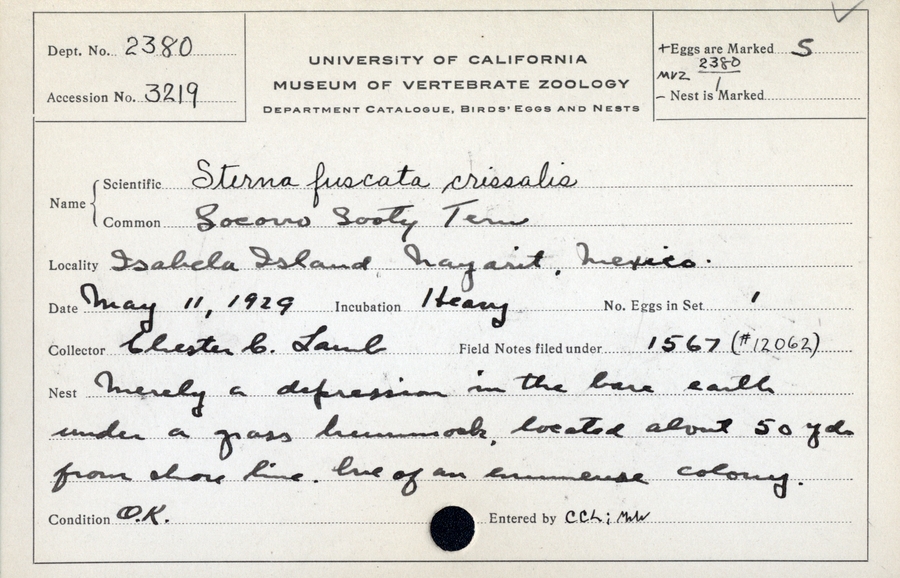 Dept. No. 2380
Accession No. 3219
UNIVERSITY OF CALIFORNIA
MUSEUM OF VERTEBRATE ZOOLOGY
DEPARTMENT CATALOGUE, BIRDS' EGGS AND NESTS
+Eggs are Marked S
MVZ 2380/1
- Nest is Marked
Name
Scientific Sterna fuscata crissalis
Common Socorro Sooty Tern
Locality Isabela Island, Nayarit, Mexico.
Date May 11, 1929 Incubation Heavy No. Eggs in Set 1
Collector Chester C. Lamb Field Notes filed under 1567 (#12062)
Nest Merely a depression in the bare earth
under a grass hummock, located about 50 yds
from shore line. One of an immense colony.
Condition O.K. Entered by CCL; MW